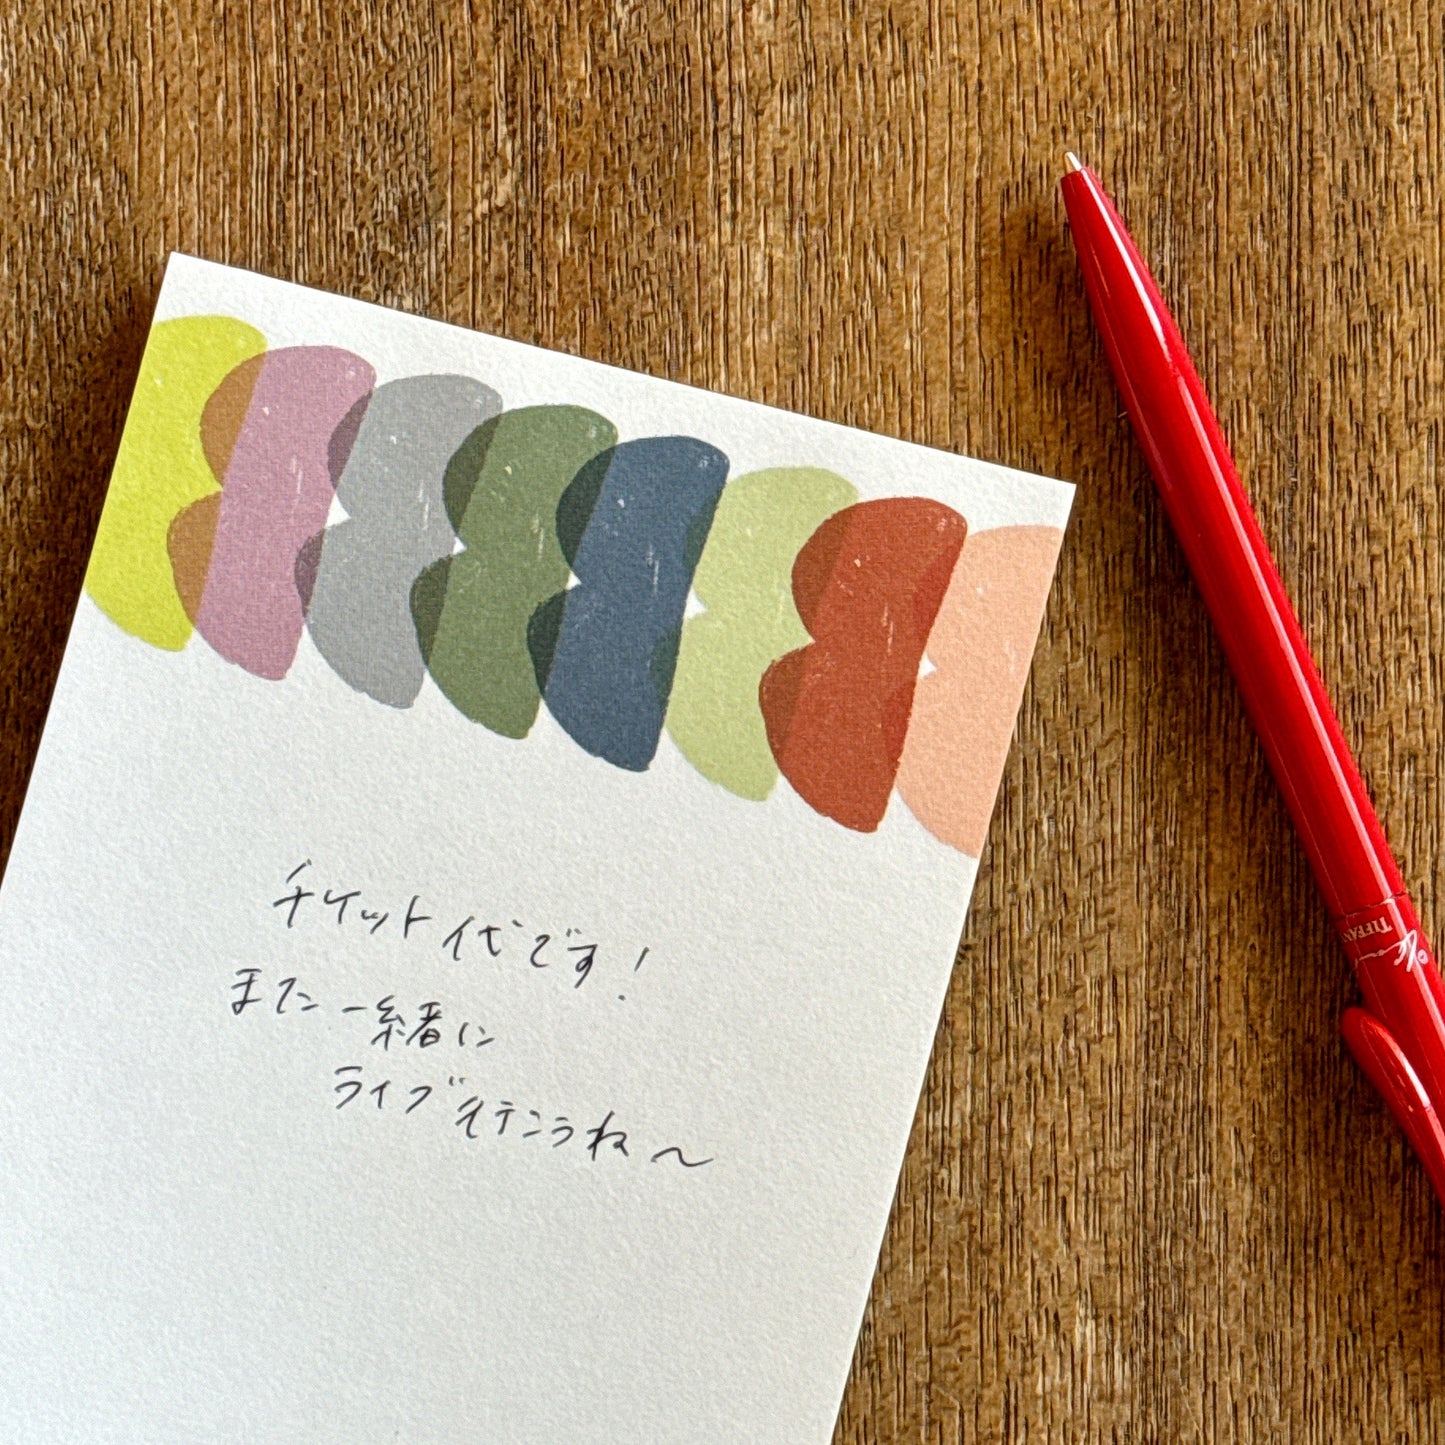 チケット代です!
また一緒に
ライブ行こうね〜
TIFFAN